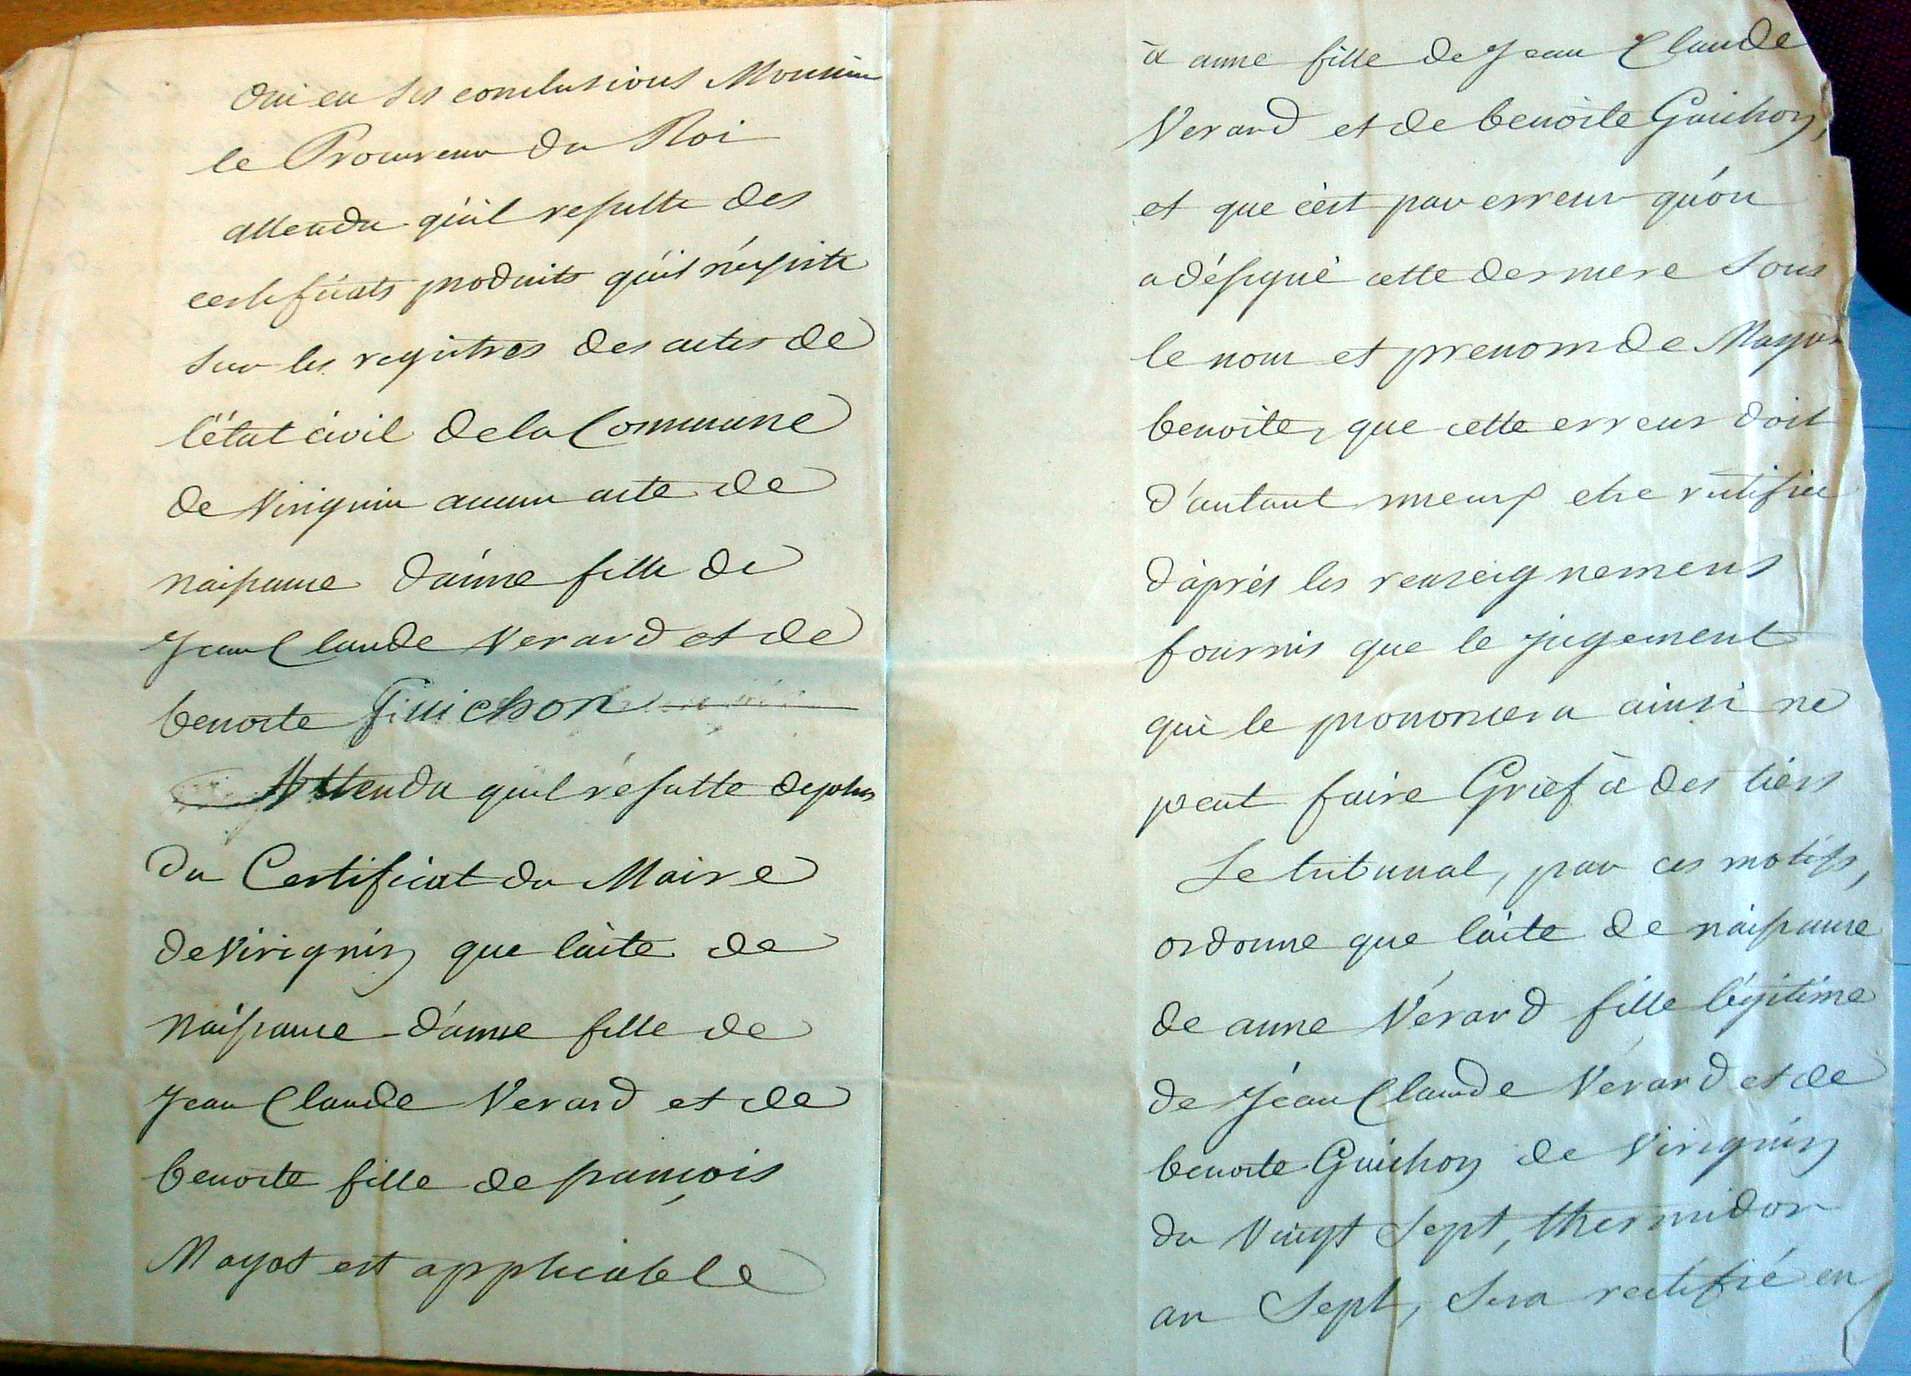 Oui en ses conclusions Monsieur
le Procureur du Roi
attendu qu'il resulte des
certificats produits qu'il n'existe
sur les registres des actes de
l'état civil de la Commune
de Virignin aucun acte de
naissance d'anne fille de
Jean Claude Verard et de
benoite Guichon
Attendu qu'il résulte de plus
du Certificat du Maire
de Virignin que l'acte de
naissance d'anne fille de
Jean Claude Verard et de
benoite fille de françois
Mayot est applicable
à anne fille de Jean Claude
Verard et de benoite Guichon,
et que c'est par erreur qu'on
a désigné cette derniere sous
le nom et prenom de Mayot
benoite, que cette erreur doit
d'autant mieux etre rectifiée
d'après les renseignemens
fournis que le jugement
qui le prononcera ainsi ne
peut faire Grief à des tiers
Le tribunal, par ces motifs,
ordonne que l'acte de naissance
de anne Vérard fille légitime
de Jean Claude Vérard et de
benoite Guichon de Virignin
du Vingt Sept, thermidor
an Sept, Sera rectifié en